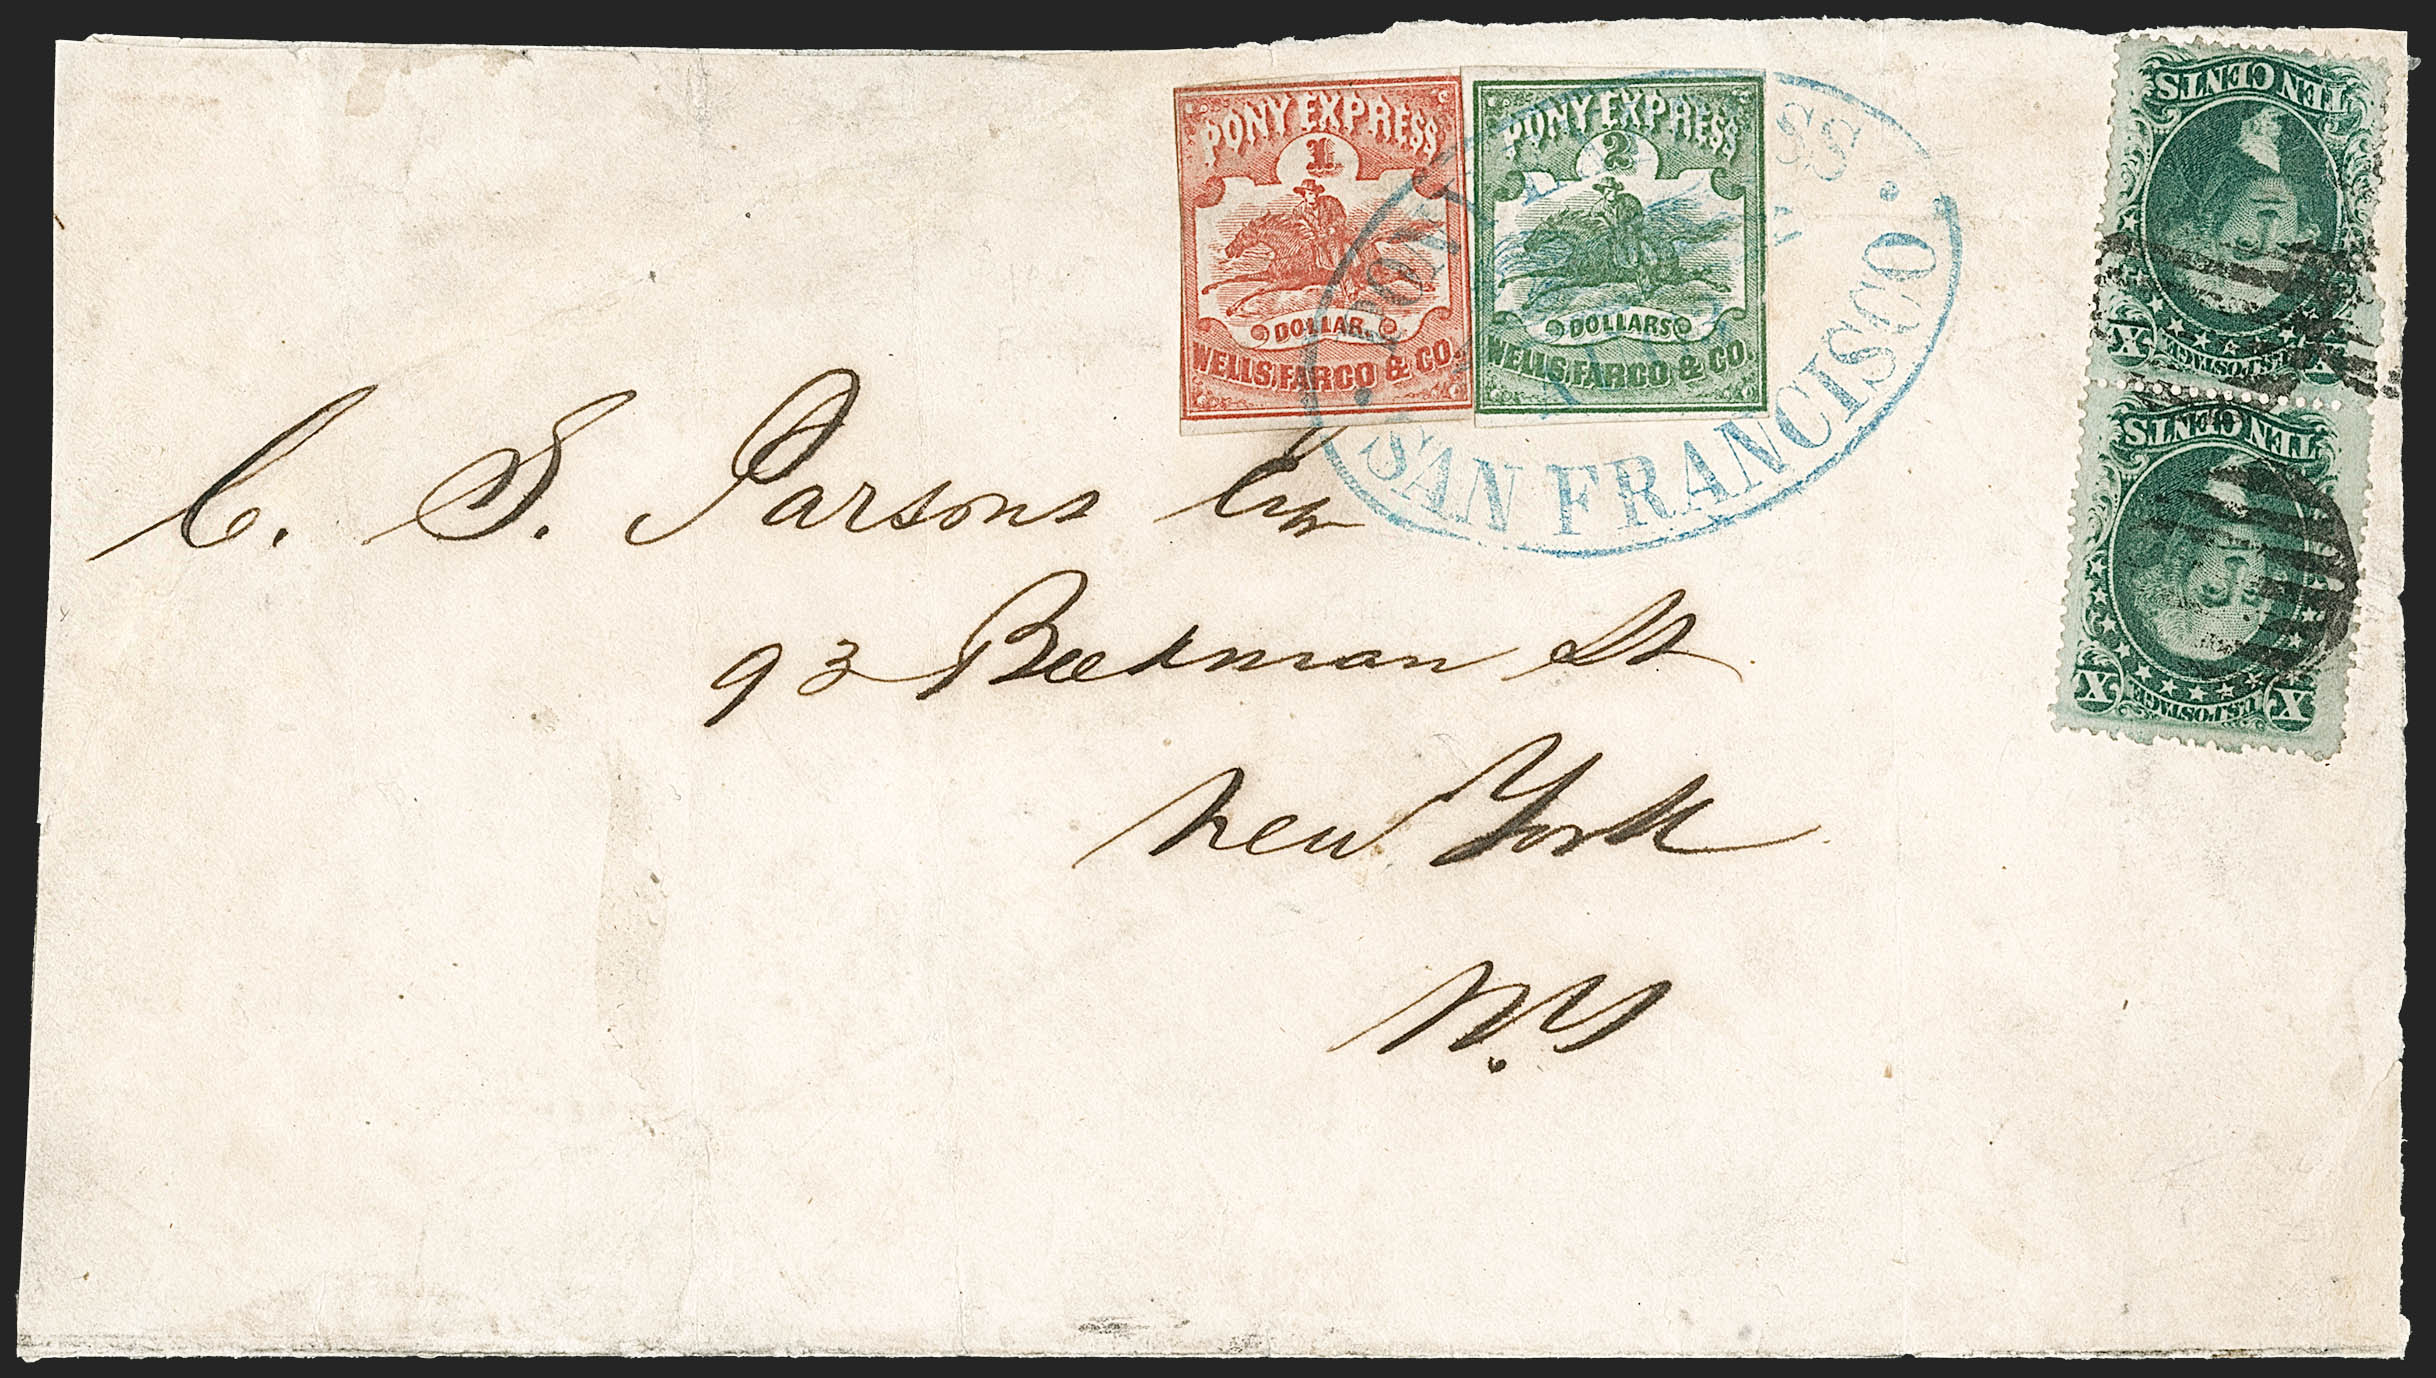 PONY EXPRESS
1
DOLLAR.
WELLS, FARGO & CO.
PONY EXPRESS
2
DOLLARS
WELLS, FARGO & CO.
PONY EXPRESS
SAN FRANCISCO
TEN CENTS
X U.S. POSTAGE X
TEN CENTS
X U.S. POSTAGE X
C. S. Parsons Esqr
93 Beekman St.
New York
N.Y